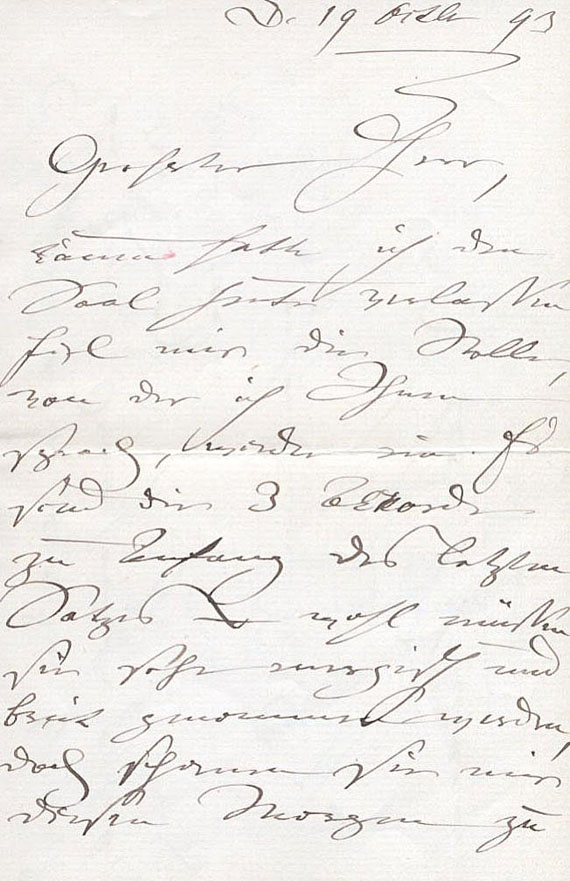 D. 19 Octb 93
Geehrter Herr,
kaum hatte ich den
Saal heute verlassen
fiel mir die Stelle,
von der ich Ihnen
sprach, wieder ein. Es
sind die 3 Akkorde
zu Anfang des letzten
Satzes. Wohl müssen
sie sehr energisch und
breit genommen werden,
doch schienen sie mir
diesen Morgen zu